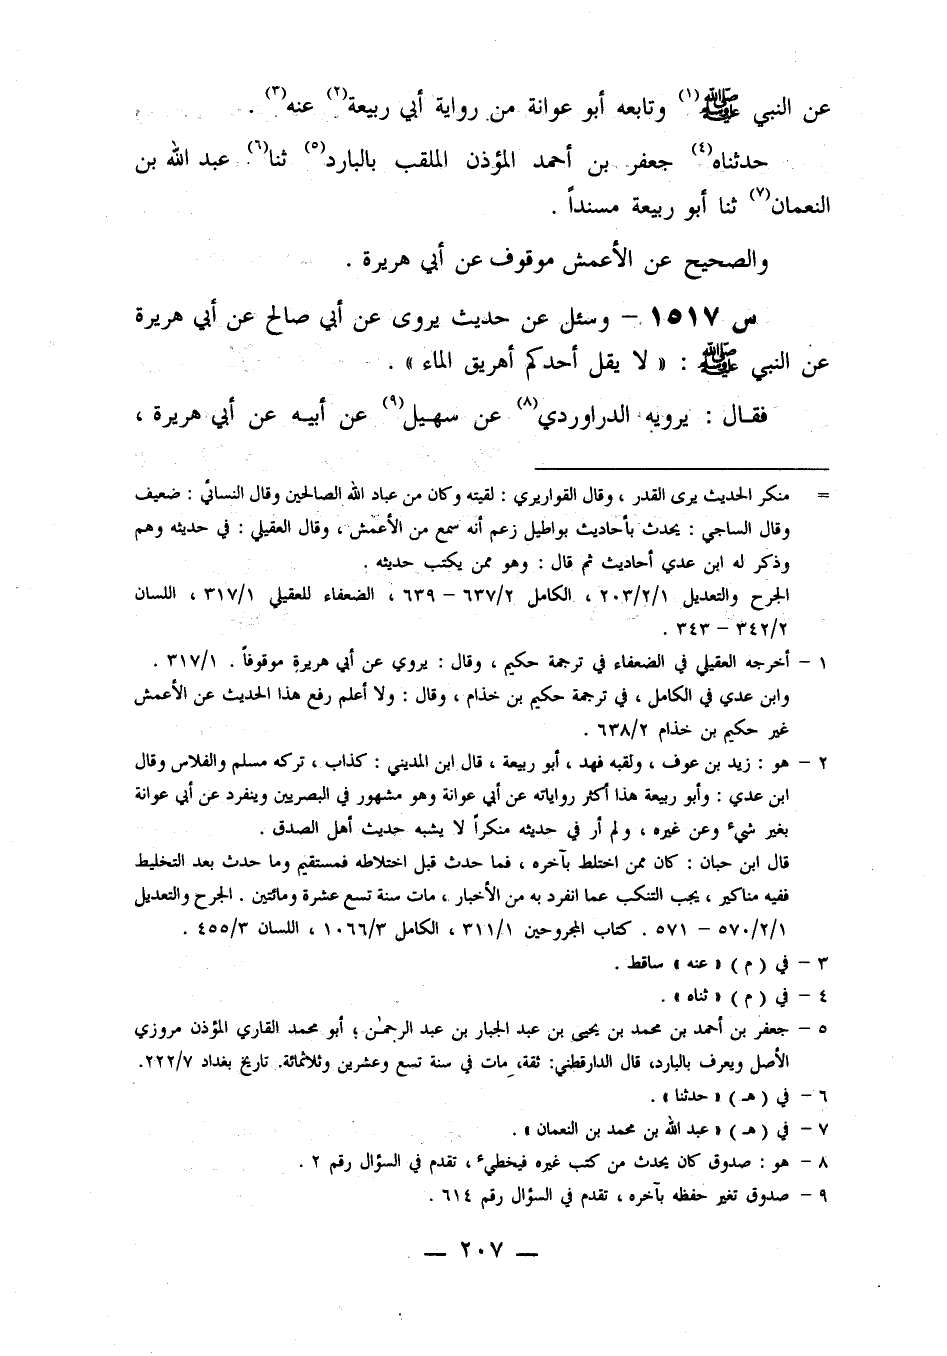 عن النبي ﷺ(١) وتابعه أبو عوانة من رواية أبي ربيعة(٢) عنه(٣) .
حدثناه(٤) جعفر بن أحمد المؤذن الملقب بالبارد(٥) ثنا(٦) عبد الله بن
النعمان(٧) ثنا أبو ربيعة مسنداً .
والصحيح عن الأعمش موقوف عن أبي هريرة .
س ١٥١٧ – وسئل عن حديث يروى عن أبي صالح عن أبي هريرة
عن النبي ﷺ : « لا يقل أحدكم أهريق الماء » .
فقـال : يرويه الدراوردي(٨) عن سهيل(٩) عن أبيـه عن أبي هريرة ،
= منكر الحديث يرى القدر ، وقال القواريري : لقيته وكان من عباد الله الصالحين وقال النسائي : ضعيف
وقال الساجي : يحدث بأحاديث بواطيل زعم أنه سمع من الأعمش ، وقال العقيلي : في حديثه وهم
وذكر له ابن عدي أحاديث ثم قال : وهو ممن يكتب حديثه .
الجرح والتعديل ٢٠٣/٢/١ ، الكامل ٦٣٧/٢ – ٦٣٩ ، الضعفاء للعقيلي ٣١٧/١ ، اللسان
٣٤٢/٢ – ٣٤٣ .
١ – أخرجه العقيلي في الضعفاء في ترجمة حكيم ، وقال : يروي عن أبي هريرة موقوفاً . ٣١٧/١ .
وابن عدي في الكامل ، في ترجمة حكيم بن خذام ، وقال : ولا أعلم رفع هذا الحديث عن الأعمش
غير حكيم بن خذام ٦٣٨/٢ .
٢ – هو : زيد بن عوف ، ولقبه فهد ، أبو ربيعة ، قال ابن المديني : كذاب ، تركه مسلم والفلاس وقال
ابن عدي : وأبو ربيعة هذا أكثر رواياته عن أبي عوانة وهو مشهور في البصريين وينفرد عن أبي عوانة
بغير شيء وعن غيره ، ولم أر في حديثه منكراً لا يشبه حديث أهل الصدق .
قال ابن حبان : كان ممن اختلط بآخره ، فما حدث قبل اختلاطه فمستقيم وما حدث بعد التخليط
ففيه مناكير ، يجب التنكب عما انفرد به من الأخبار ، مات سنة تسع عشرة ومائتين . الجرح والتعديل
٥٧٠/٢/١ – ٥٧١ . كتاب المجروحين ٣١١/١ ، الكامل ١٠٦٦/٣ ، اللسان ٤٥٥/٣ .
٣ – في ( م ) « عنه » ساقط .
٤ – في ( م ) « ثناه » .
٥ – جعفر بن أحمد بن محمد بن يحيى بن عبد الجبار بن عبد الرحمٰن ؛ أبو محمد القاري المؤذن مروزي
الأصل ويعرف بالبارد، قال الدارقطني: ثقة، مات في سنة تسع وعشرين وثلاثمائة. تاريخ بغداد ٢٢٢/٧.
٦ – في ( هـ ) « حدثنا » .
٧ – في ( هـ ) « عبد الله بن محمد بن النعمان » .
٨ – هو : صدوق كان يحدث من كتب غيره فيخطيء ، تقدم في السؤال رقم ٢ .
٩ – صدوق تغير حفظه بآخره ، تقدم في السؤال رقم ٦١٤ .
— ٢٠٧ —